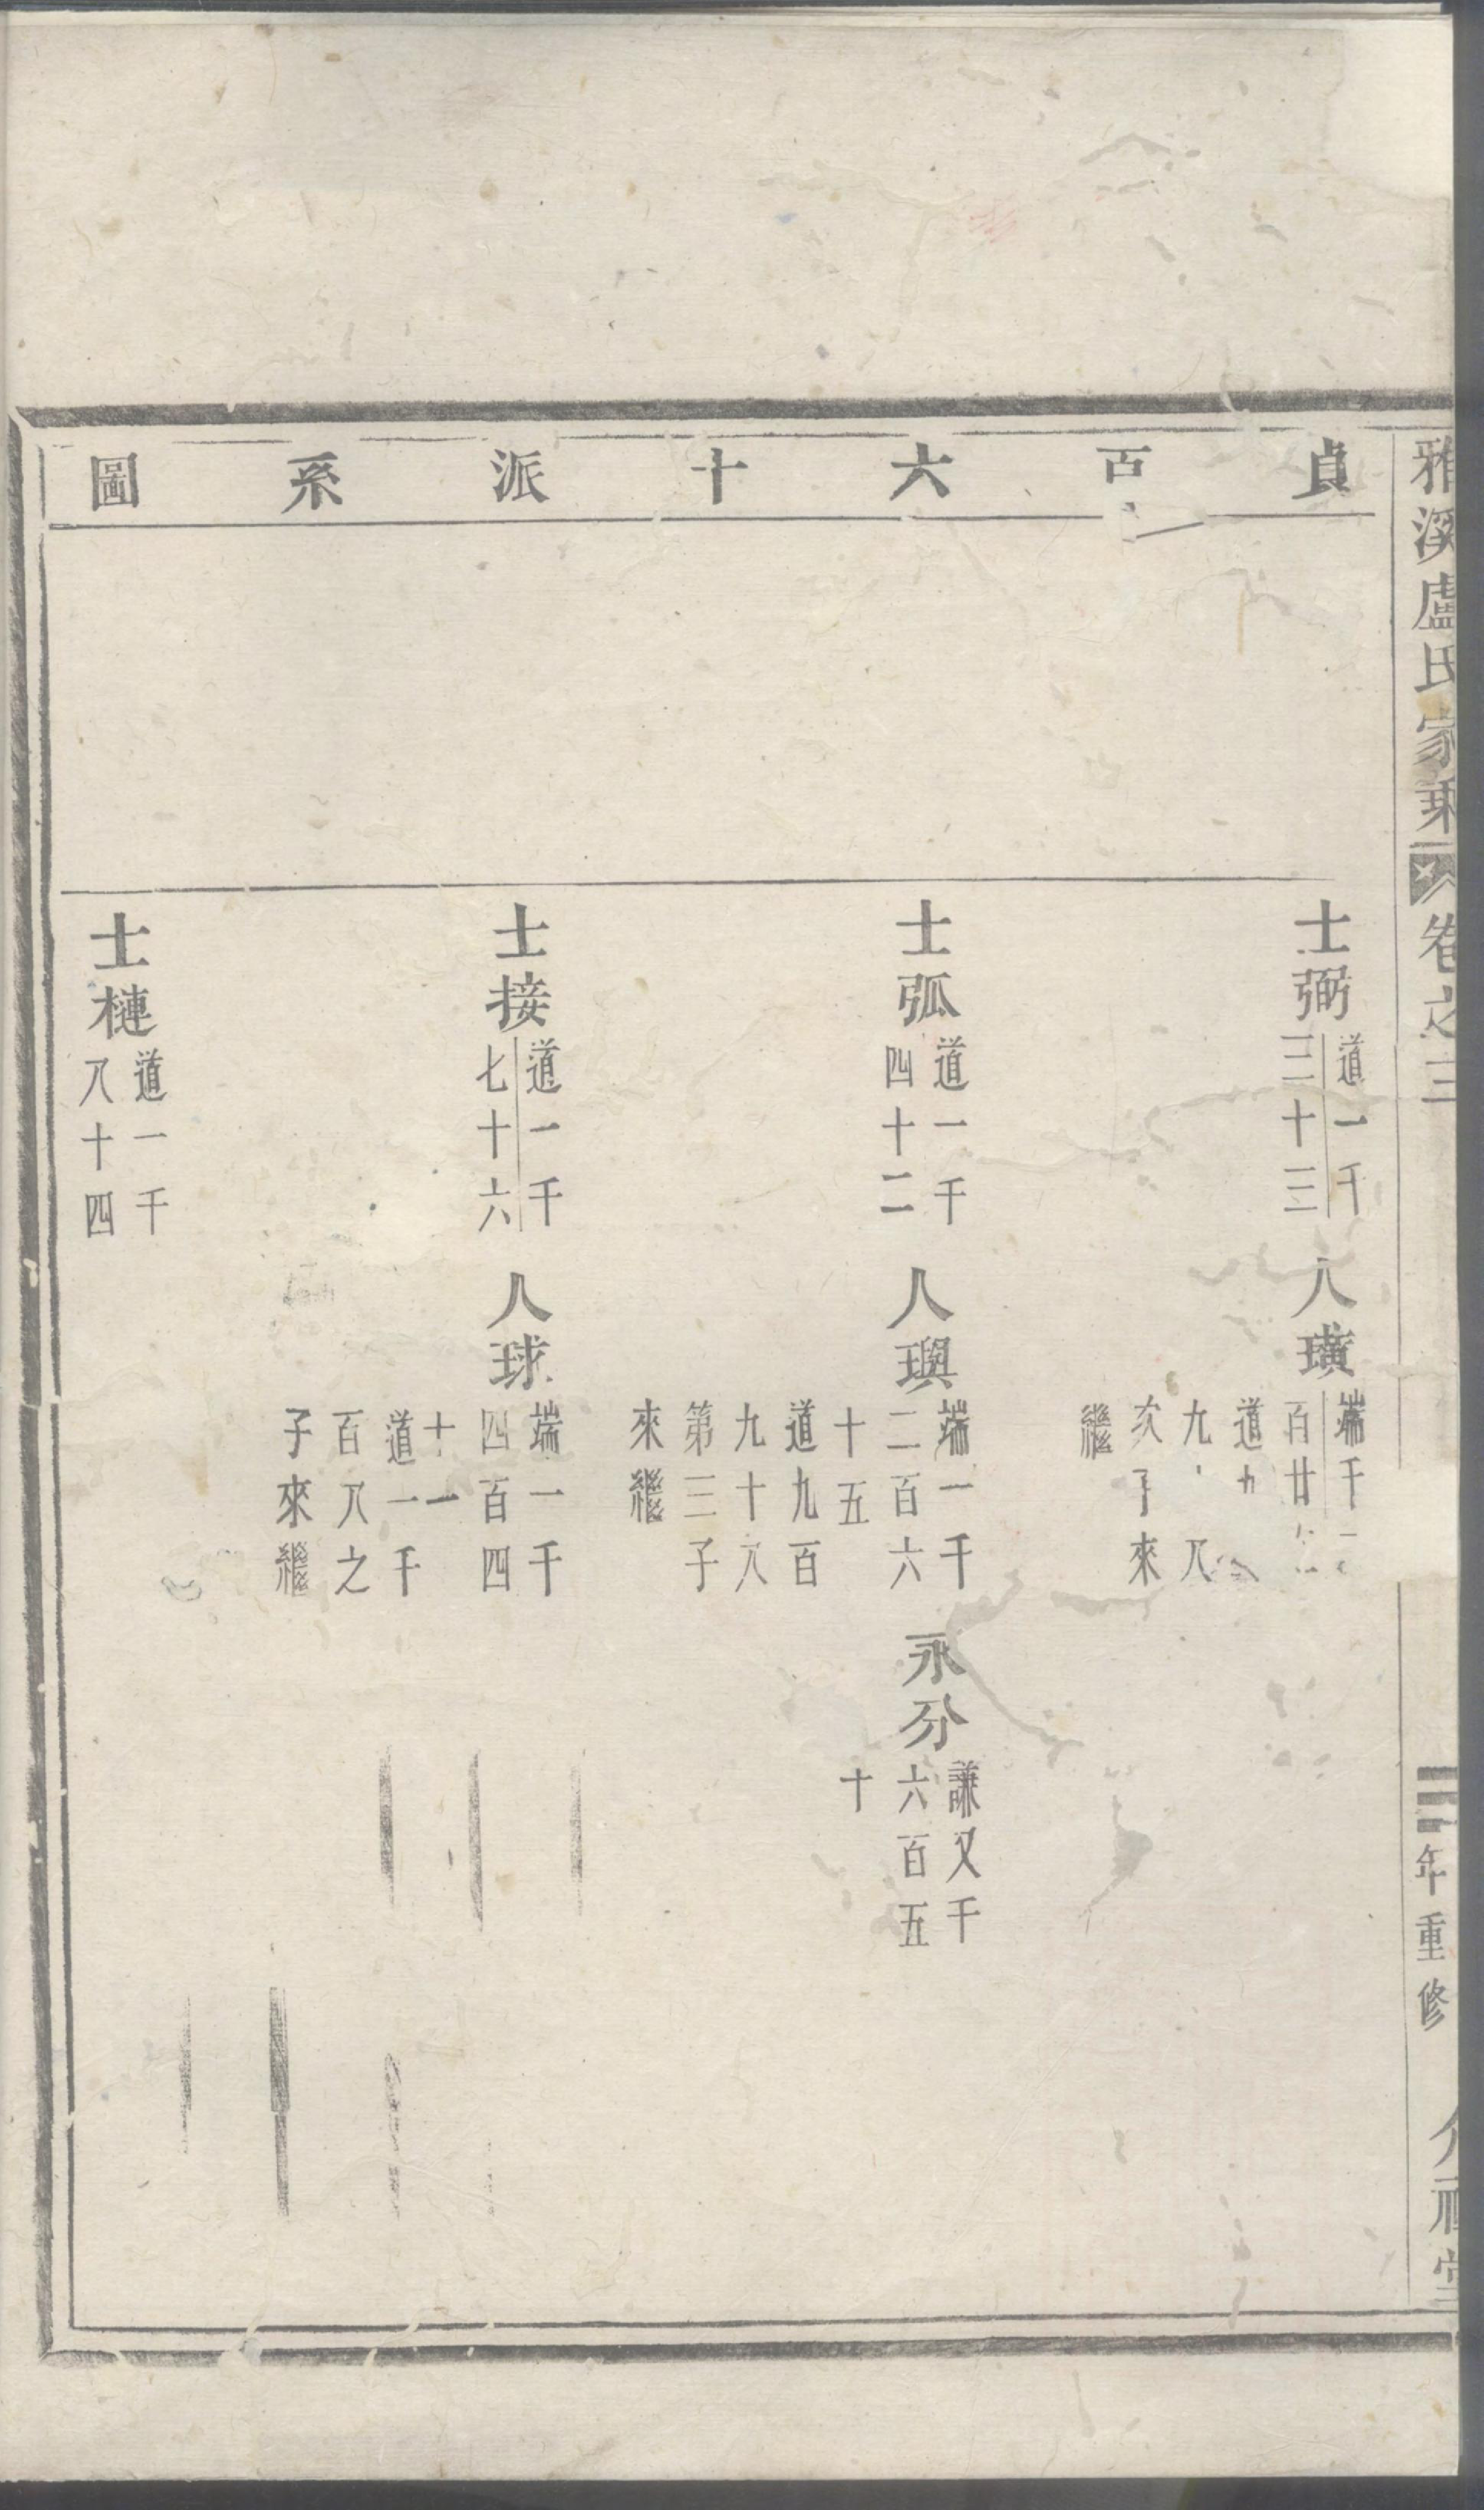 雅溪盧氏家乘
卷之三
年重修
貞百六十派系圖
士弼
道一千
三十三
人璜
端千
百廿
道九
九
八
次子來
繼
士弧
道一千
四十二
人璵
端一千
二百六
十五
道九百
九十八
第三子
來繼
永分
謙又千
六百五
十
士接
道一千
七十六
人球
端一千
四百四
十一
道一千
百八之
子來繼
士槤
道一千
八十四